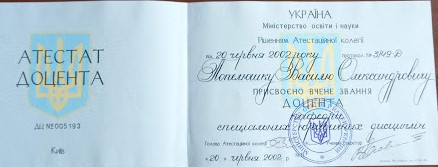 АТЕСТАТ
ДОЦЕНТА
ДЦ №005193
Київ
УКРАЇНА
Міністерство освіти і науки
Рішенням Атестаційної колегії
від 20 червня 2002 року протокол № 3/49-Д
Василю Олександровичу
ПРИСВОЄНО ВЧЕНЕ ЗВАННЯ
ДОЦЕНТА
кафедри
спеціальних дисциплін
Голова Атестаційної колегії
«20» червня 2002